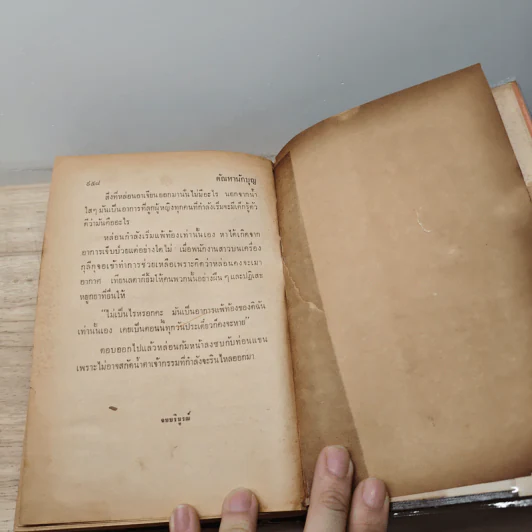 ๙๕๘ ตัณหานักบุญ
สิ่งที่หล่อนอาเจียนออกมานั้นไม่มีอะไร นอกจากน้ำ
ใสๆ มันเป็นอาการที่ลูกผู้หญิงทุกคนที่กำลังเริ่มจะมีเด็กรู้ตัว
ดีว่ามันคืออะไร
หล่อนกำลังเริ่มแพ้ท้องเท่านั้นเอง หาได้เกิดจาก
อาการเจ็บป่วยแต่อย่างใดไม่ เมื่อพนักงานสาวบนเครื่อง
กุลีกุจอเข้าทำการช่วยเหลือเพราะคิดว่าหล่อนคงจะเมา
อากาศ เทียนลดาก็ยิ้มให้คนพวกนั้นอย่างฝืน ๆ และปฏิเสธ
หยูกยาที่ยื่นให้
"ไม่เป็นไรหรอกคะ มันเป็นอาการแพ้ท้องของดิฉัน
เท่านั้นเอง เคยเป็นตอนนี้ทุกวันประเดี๋ยวก็คงจะหาย"
ตอบออกไปแล้วหล่อนก้มหน้าลงซบกับท่อนแขน
เพราะไม่อาจสกัดน้ำตาเจ้ากรรมที่กำลังจะรินไหลออกมา
จบบริบูรณ์